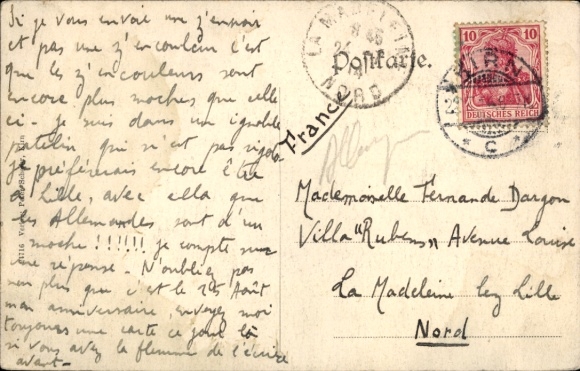 Si je vous envoie une z'en noir
et pas une z'en couleur c'est
que les z'en couleurs sont
encore plus moches que celle
ci - je suis dans un ignoble
patelin qui n'est pas rigolo
je préférerais encore être
à Lille, avec cela que
les Allemandes sont d'un
moche !!!!!! je compte sur
une réponse. N'oubliez pas
non plus que c'est le 25 Août
mon anniversaire, envoyez moi
toujours une carte ce jour là
si vous avez la flemme de l'écrire
avant-
Postkarte.
LA MADELEINE
NORD
10 10
DEUTSCHES REICH
KIRN
* C *
France
Mademoiselle Fernande Dargon
Villa "Rubens" Avenue Louise
La Madeleine lez Lille
Nord